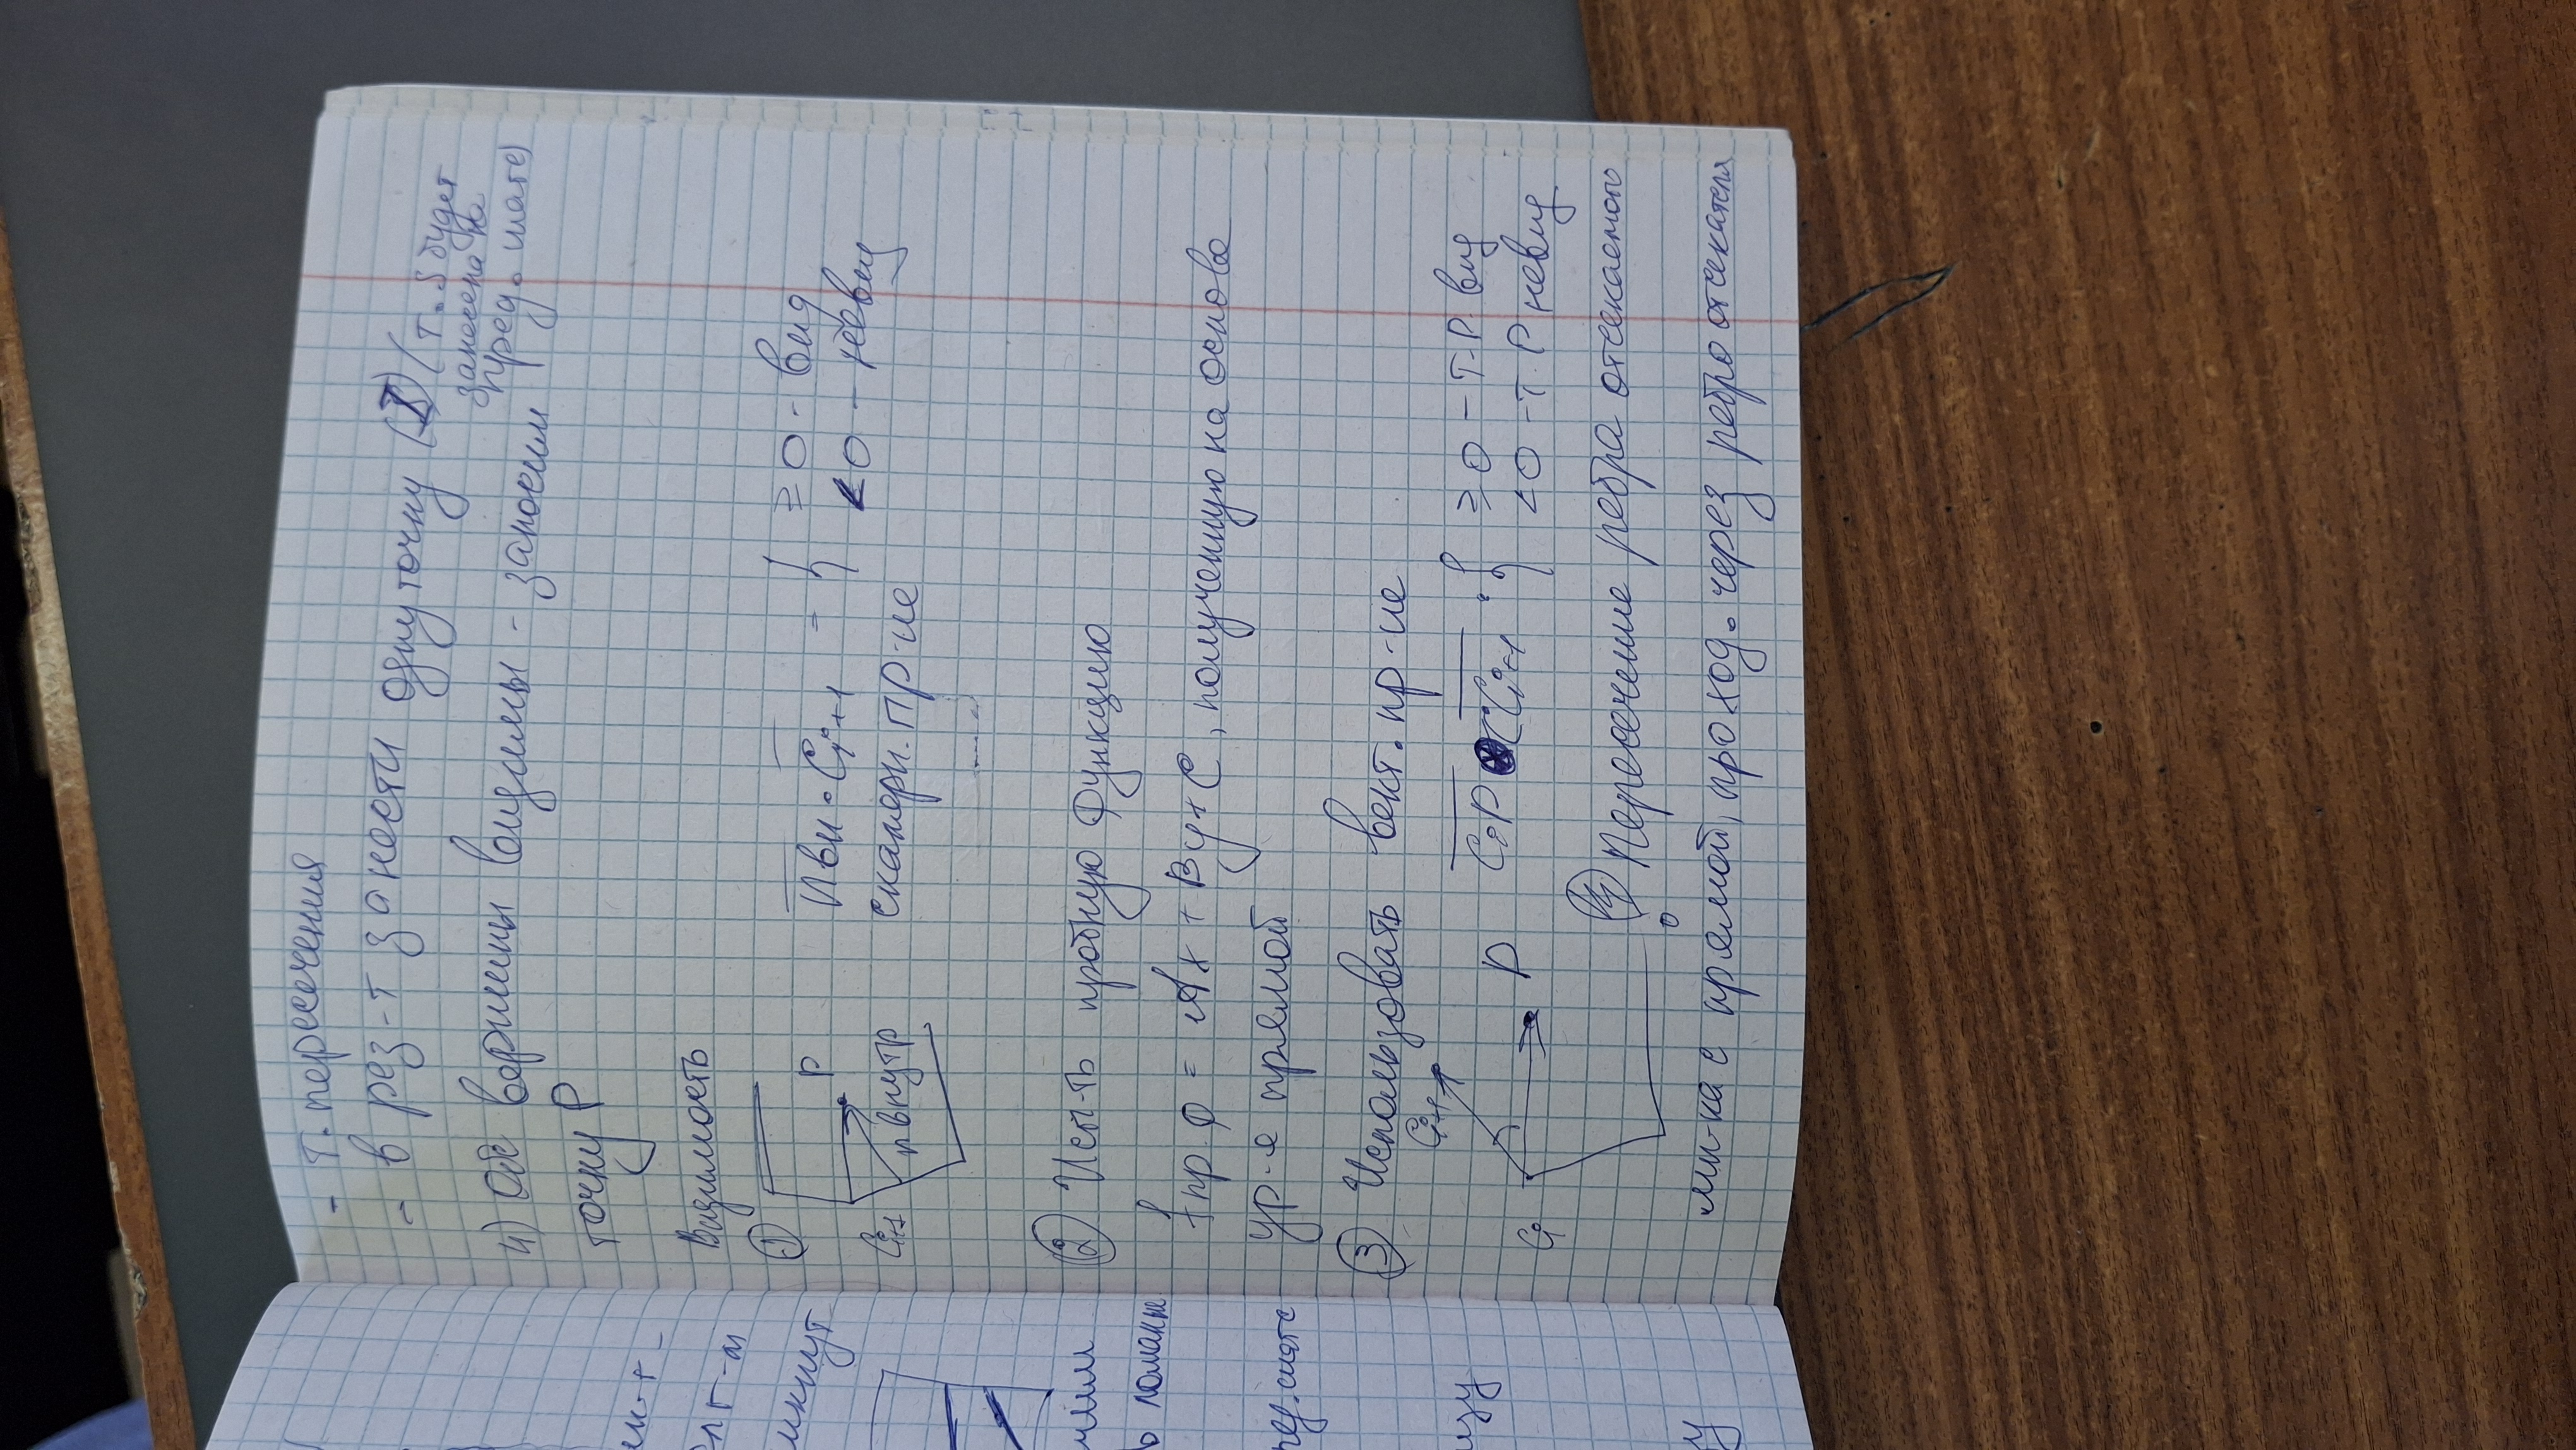 - т. пересечения
- в рез-т занести одну точку (I) (т. S будет
занесена на
пред. шаге)
4) Обе вершины видимы - заносим
точку P
Видимость
① 
P
Ci+1
n внутр
nвн · Ci+1 = { ≥ 0 - вид
< 0 - невид
скалярн. пр-ие
② Исп-ть пробную функцию
f пр. ф = Ax + By + C, полученную на основе
ур-я прямой
③ Использовать вект. пр-ие
Ci+1
Ci
P
CiP × CiCi+1 : { ≥ 0 - т. P вид
< 0 - т. P невид
Пересечение ребра отсекаемого
мн-ка с прямой, проход. через ребро отсекателя
мкнут
чим
ь ломанн
ред. шаге
изу
у